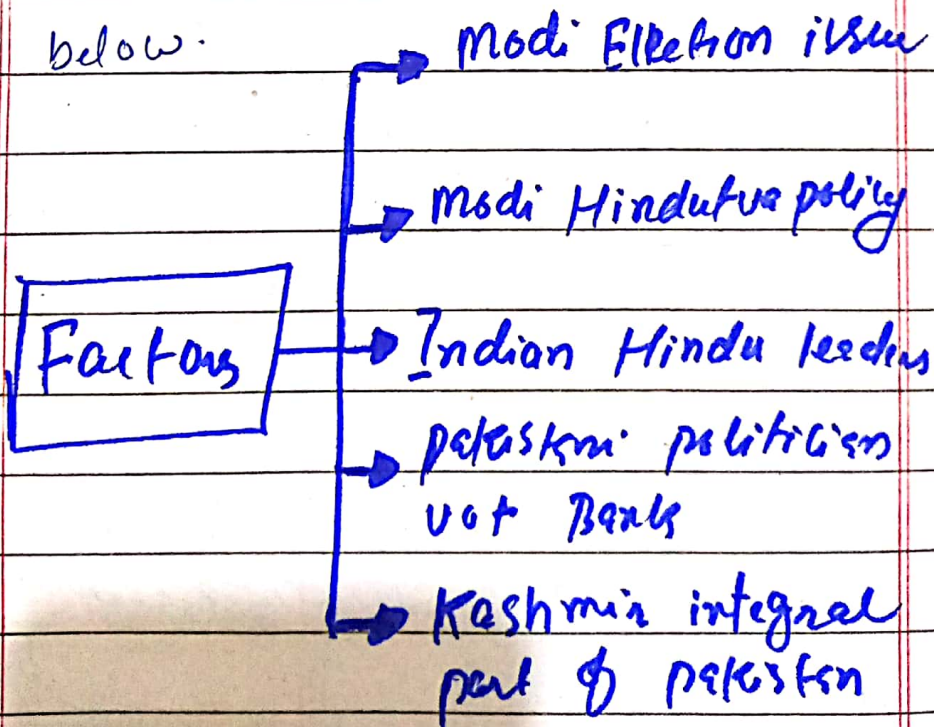 below.
Modi Election issue
Modi Hindutva policy
Factors
Indian Hindu leaders
pakistani politicians
vot Bank
Kashmir integral
part of pakistan